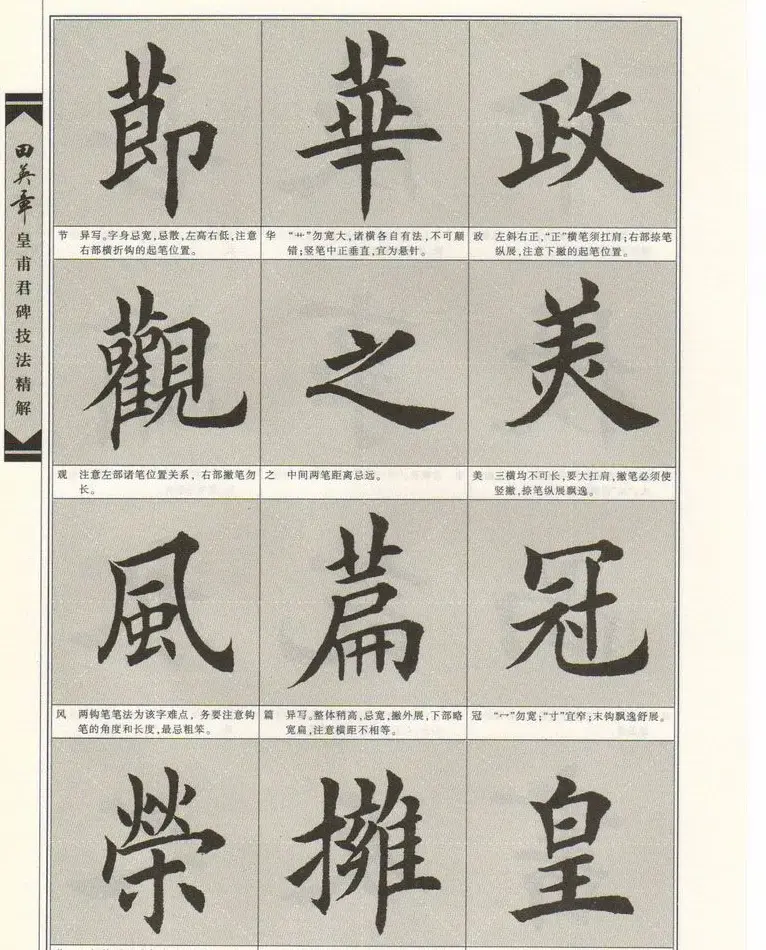 田英章皇甫君碑技法精解
節
華
政
节 异写。字身忌宽,忌散,左高右低,注意
右部横折钩的起笔位置。
华 “艹”勿宽大,诸横各自有法,不可颠
错;竖笔中正垂直,宜为悬针。
政 左斜右正,“正”横笔须扛肩;右部捺笔
纵展,注意下撇的起笔位置。
觀
之
美
观 注意左部诸笔位置关系,右部撇笔勿
长。
之 中间两笔距离忌远。
美 三横均不可长,要大扛肩,撇笔必须使
竖撇,捺笔纵展飘逸。
風
篇
冠
风 两钩笔笔法为该字难点,务要注意钩
笔的角度和长度,最忌粗笨。
篇 异写。整体稍高,忌宽,撇外展,下部略
宽扁,注意横距不相等。
冠 “冖”勿宽;“寸”宜窄;末钩飘逸舒展。
榮
擁
皇